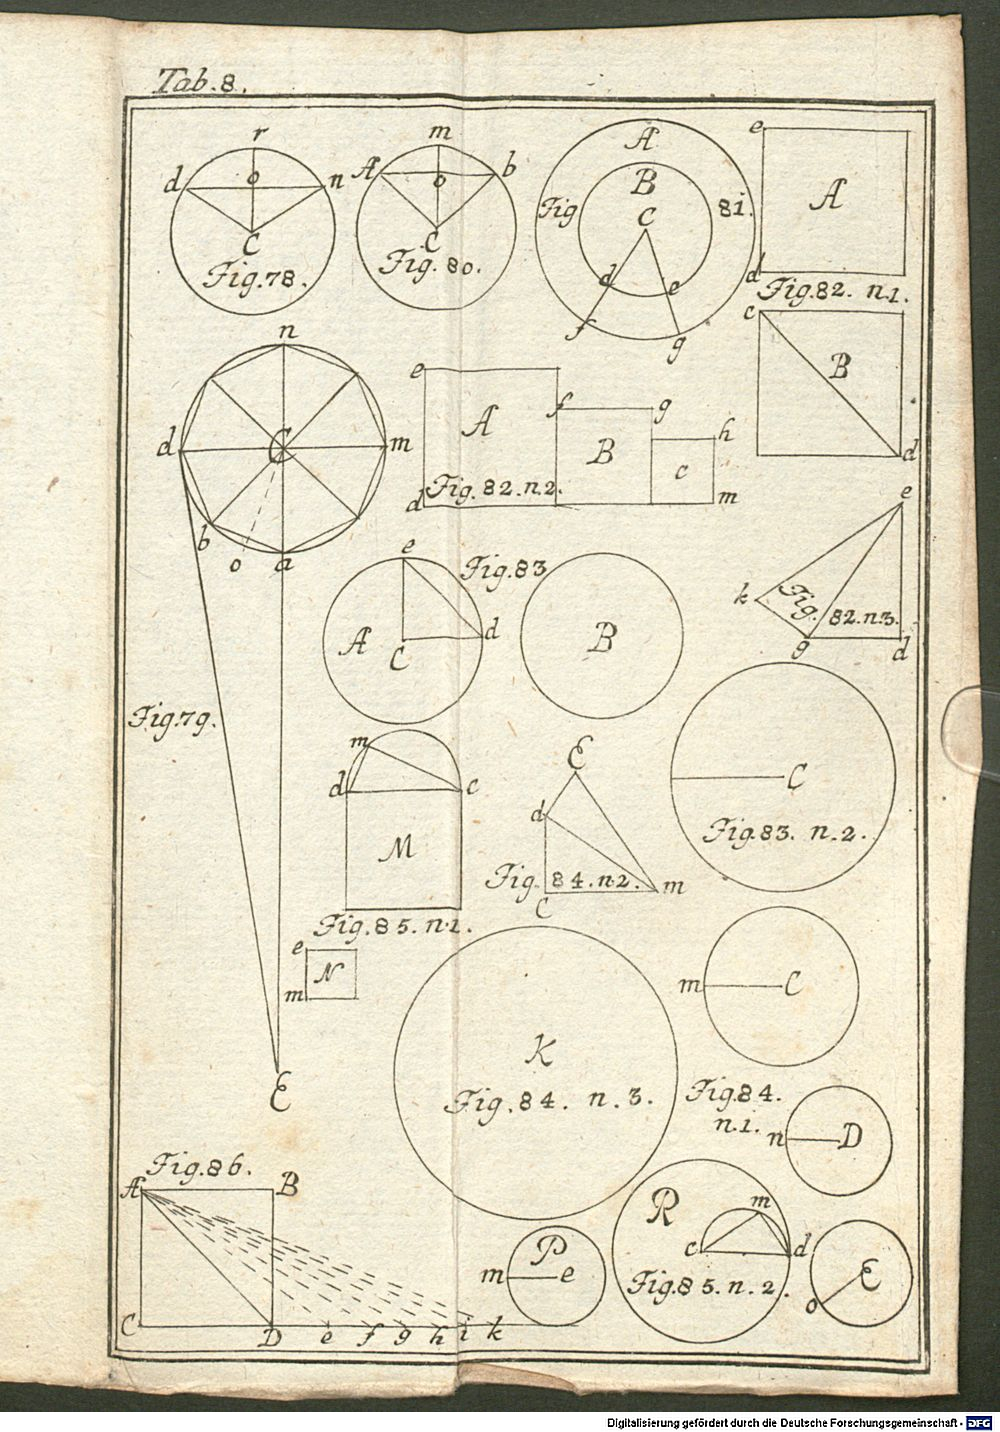 Tab. 8.
r
d o n
C
Fig. 78.
m
A o b
C
Fig. 80.
A
B
Fig 81.
C
d e
f g
e
A
d
Fig. 82. n.1.
c
B
d
n
d C m
b o a
Fig. 79.
E
e
A f g
B h
c
d Fig. 82. n.2. m
e
k Fig. 82. n.3.
g d
e Fig. 83
A C d
B
C
Fig. 83. n.2.
m
d c
M
Fig. 85. n.1.
e N
m
E
d
Fig. 84. n.2. m
C
m C
K
Fig. 84. n.3.
Fig. 84.
n.1. n D
Fig. 86.
A B
C D e f g h i k
P
m e
R m
c d
Fig. 85. n.2.
E
o
Digitalisierung gefördert durch die Deutsche Forschungsgemeinschaft - DFG